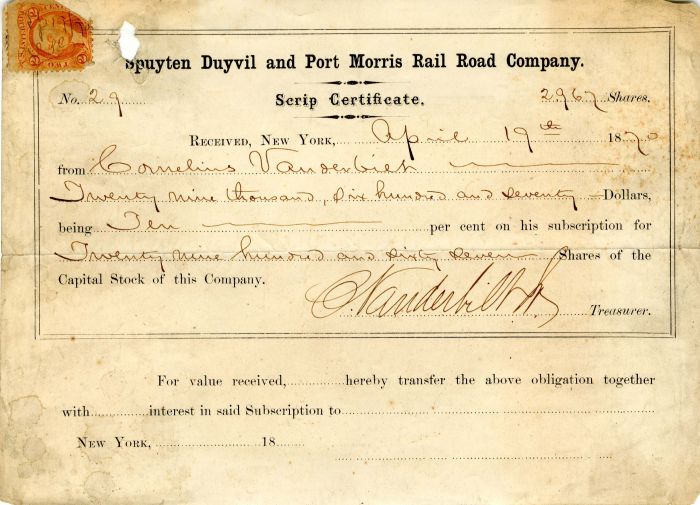 Spuyten Duyvil and Port Morris Rail Road Company.
No. 29 Scrip Certificate. 2967 Shares.
Received, New York, April 19th 1870
from Cornelius Vanderbilt
Twenty nine thousand, six hundred and seventy Dollars,
being Ten per cent on his subscription for
Twenty nine hundred and sixty seven Shares of the
Capital Stock of this Company.
C Vanderbilt Jr Treasurer.
For value received, hereby transfer the above obligation together
with interest in said Subscription to
New York, 18